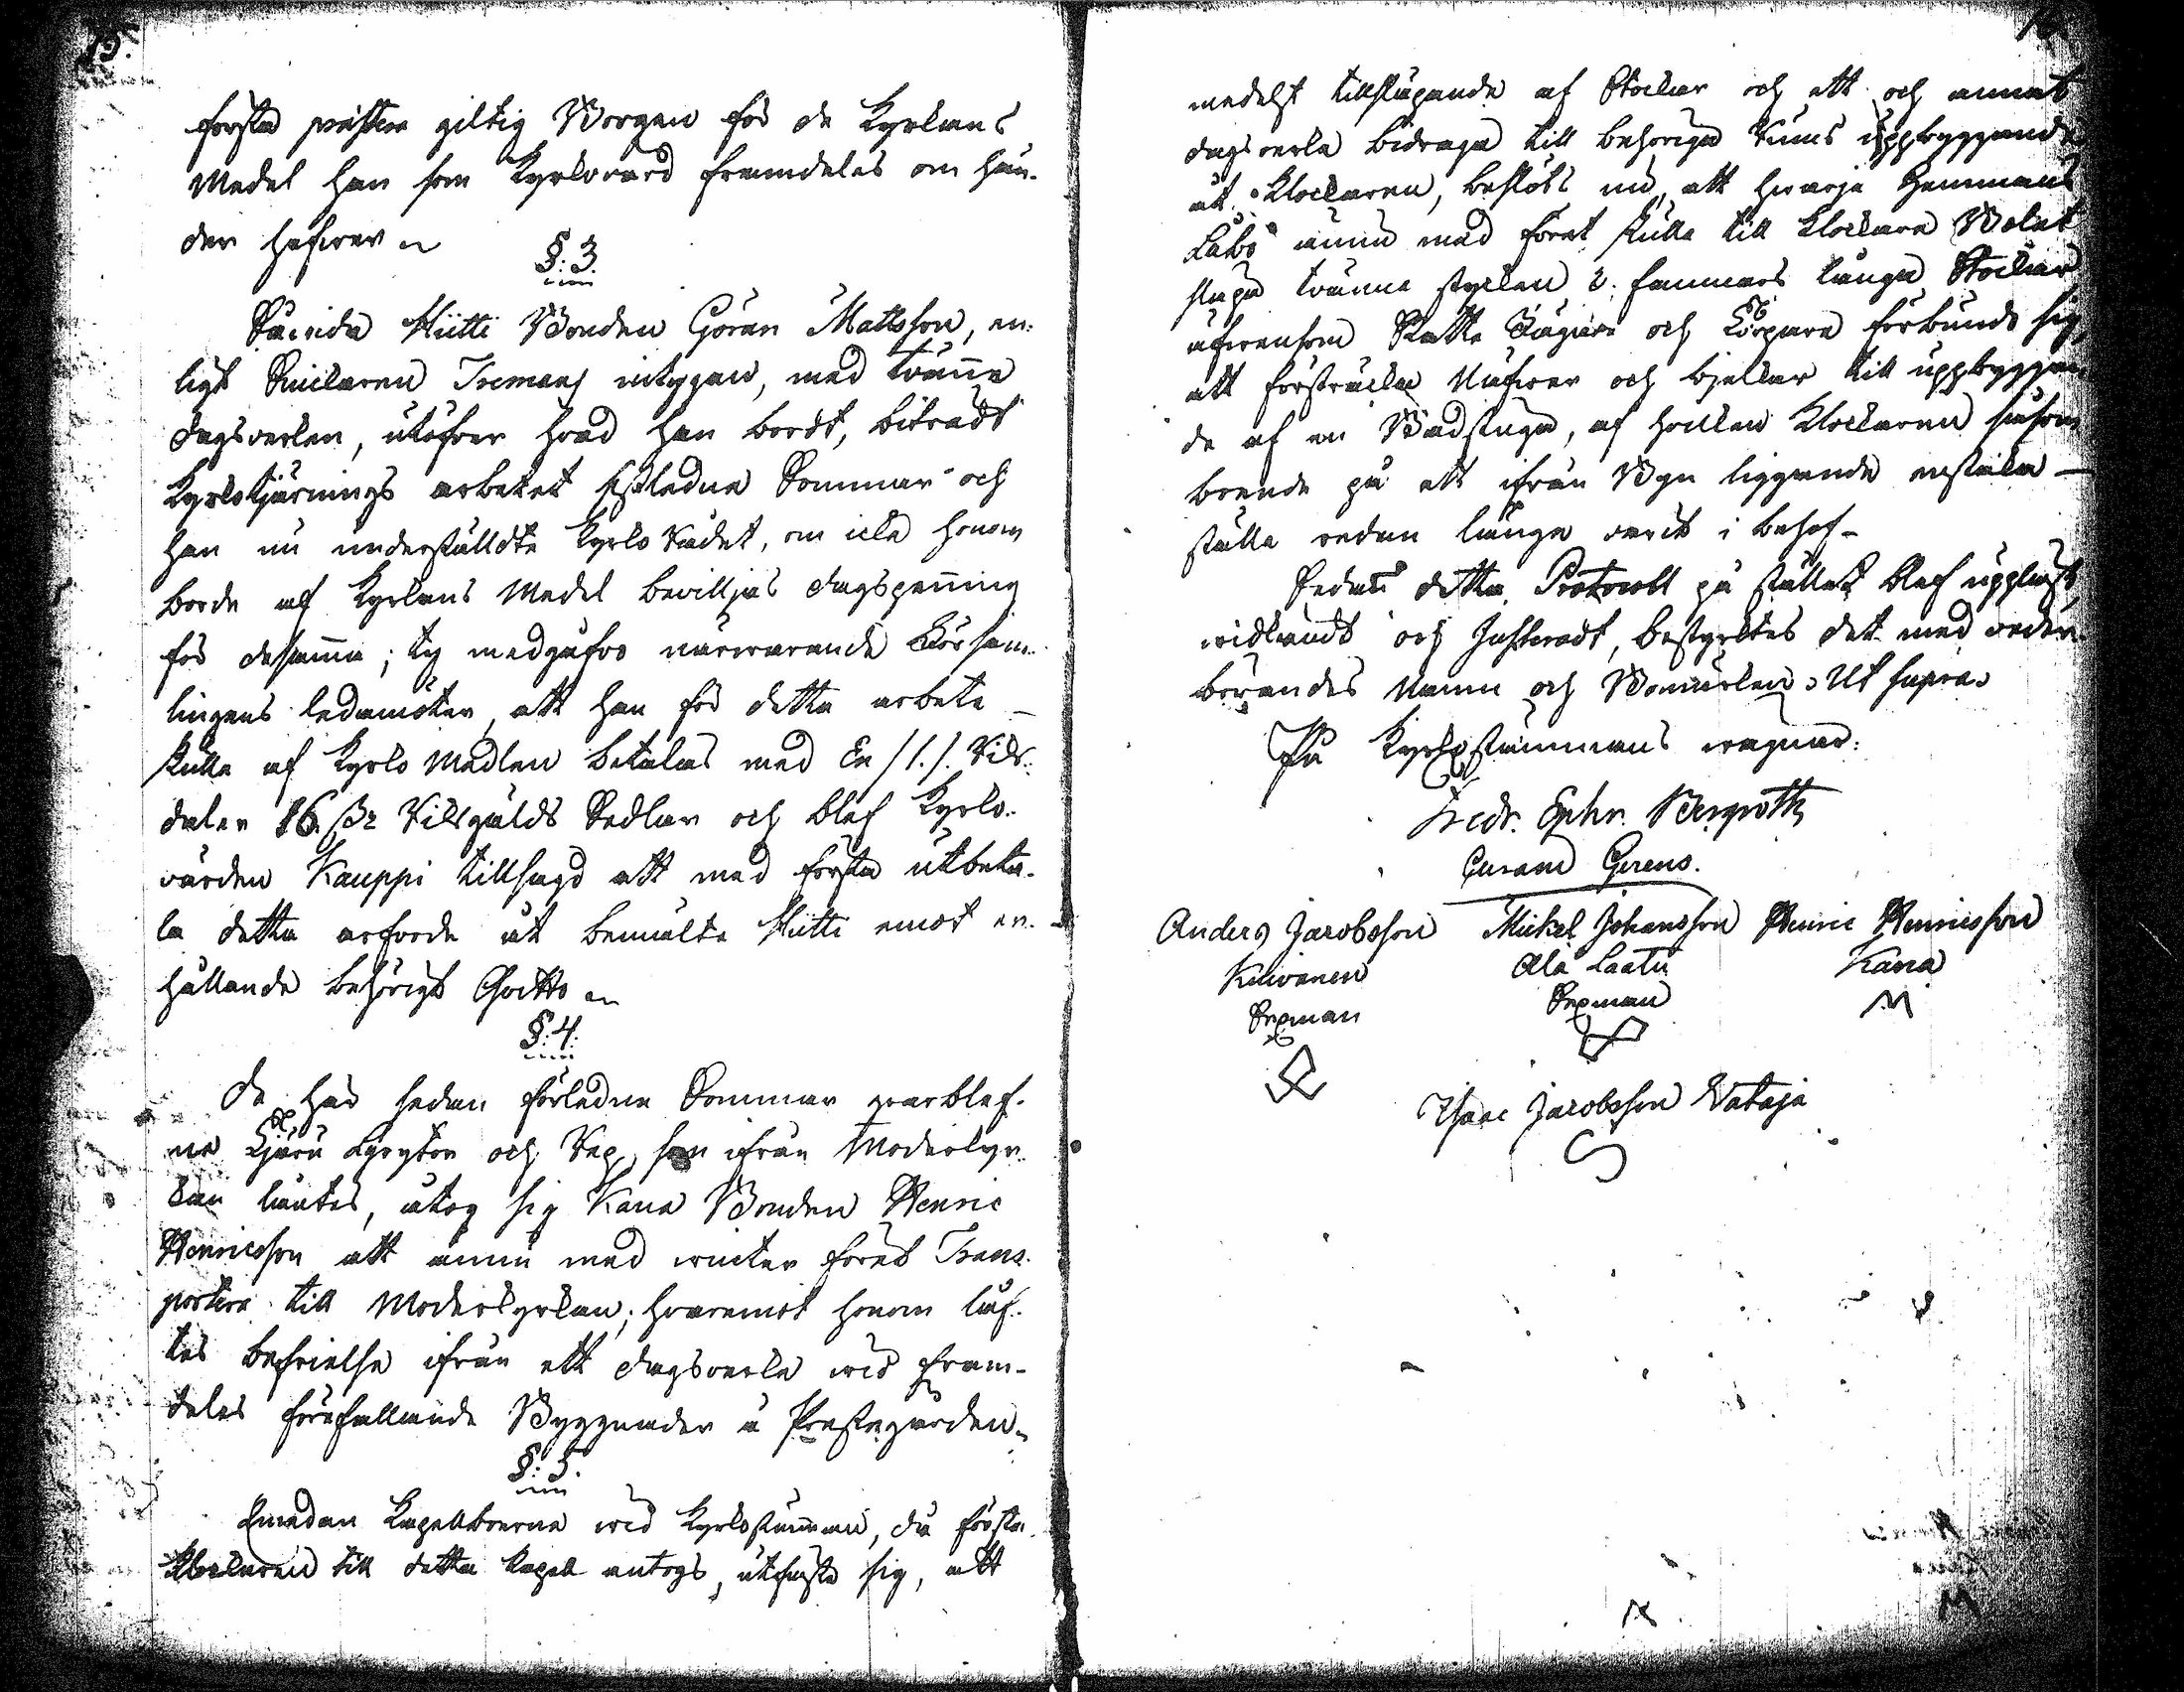 15.
första præstera giltig Borgen för de Kyrkans
Medel han som Kyrkovärd framdeles om hän-
der hafwer
§: 3.
Såsida Hütti Bonden Göran Mattsson, en-
ligt Snickaren Tremans intygan, med tvänne
dagsverken, utöfver hvad han bordt, biträdt
Kyrkotjärnings arbetet sistledne Sommar och
han nu underställdte Kyrko Rådet, om icke honom
borde af Kyrkans Medel bevilljas dagspenning
för desamma; ty medgåfvo närwarande Församl-
lingens ledamöter, att han för detta arbete
skulle af Kyrko Medlen betalas med En /1./. Riks-
daler 16 ß Riksgälds Sedlar och blef Kyrko-
värden Kauppi tillsagd att med första utbeta-
la detta arfvode åt bemälte Hütti emot er-
hållande behörigt Qvitto
§: 4.
De här sedan förledne Sommar qvarblef-
ne Tjäru Grytor och Rep, som ifrån Moderkyr-
kan låntes, åtog sig Kana Bonden Henric
Henricsson att ännu med winter föret Trans-
portera till Moderkyrkan; hvaremot honom läf-
tes befrielse ifrån ett dagsverke wid fram-
deles förefallande Byggnader å Prästegården.
§: 5.
Emedan Kapellboerne wid Kyrkostämman, då första
Klockaren till detta Kapell antogs, utfäste sig, att
medelst tillsläpande af Stockar och ett och annat
dagsverke bidraga till behöriga Rums uppbyggande
åt Klockaren, beslöts nu, att hwarje Hemmans
Åbo ännu med föret skulle till Klockare Bolet
släpa tvänne stycken 3. famnars långa Stockar
äfwensom Skatte Jägare och Torpare förbundo sig,
att försträcka Näfwer och bjelkar till uppbyggan-
de af en Badstuga, af hvilken Klockaren såsom
boende på ett ifrån Byn liggande enstaka
ställe redan länge varit i behof-
Sedan detta Protocoll på stället blef uppläst,
widkändt och Justeradt, bestyrktes det med veder-
börandes Namn och Bomärken. Ut supra.
På Kyrkostämmans wägnar:
Fredr. Ephr. Bergroth
Curam Gerens.
Anders Jacobsson Mickel Johansson Henric Henricsson
Kiwinen Ala Laatu Kana
Sexman Sexman
Isaac Jacobsson Vataja